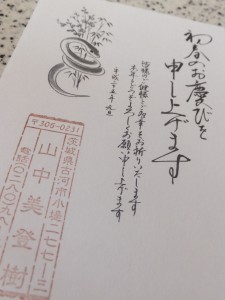 初春のお慶びを
申し上げます
皆様のご健康とご多幸をお祈りいたします
本年もどうぞよろしくお願い申し上げます
平成二十五年 元旦
〒306-0231
茨城県古河市小堤二七七-三
山中美登樹
電話〇二八〇